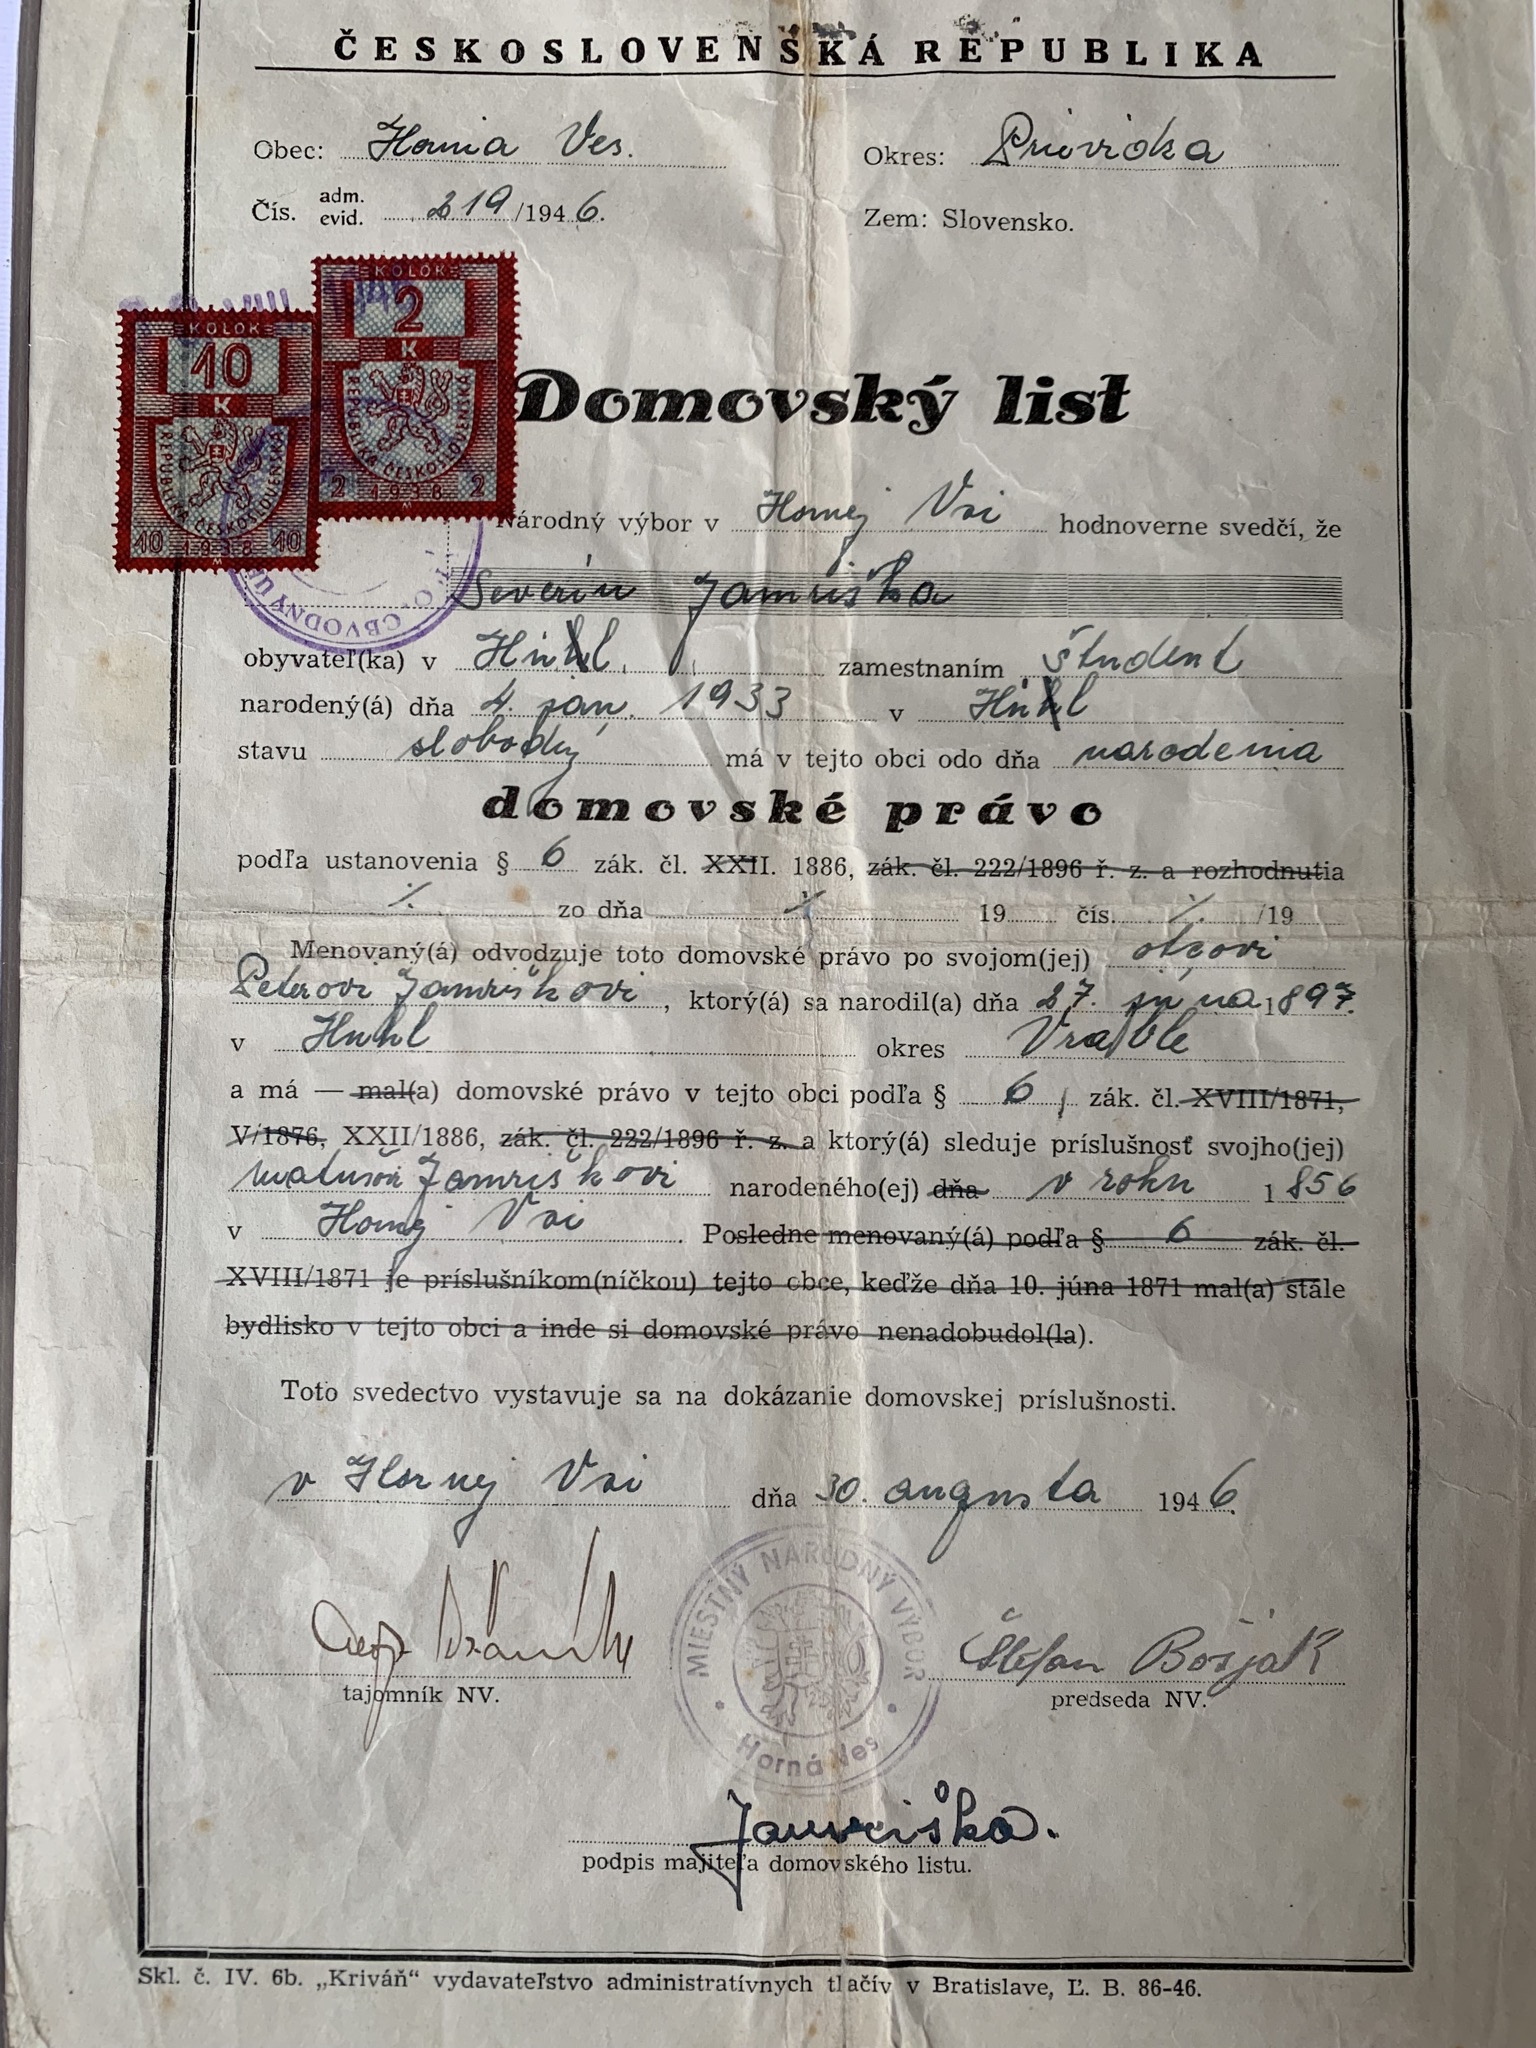 ČESKOSLOVENSKÁ REPUBLIKA
Obec: Hornia Ves. Okres: Prievidza
Čís. adm. evid. 219/1946. Zem: Slovensko.
KOLOK 2 K REPUBLIKA ČESKOSLOVENSKÁ 2 1938 2
KOLOK 10 K REPUBLIKA ČESKOSLOVENSKÁ 10 1938 10
VIII
Domovský list
Národný výbor v Hornej Vsi hodnoverne svedčí, že
Severín Jamriška
OBVODNÝ
obyvateľ(ka) v zamestnaním študent
narodený(á) dňa 4. jan. 1933 v
stavu slobodný má v tejto obci odo dňa narodenia
domovské právo
podľa ustanovenia § 6 zák. čl. XXII. 1886, zák. čl. 222/1896 ř. z. a rozhodnutia
./. zo dňa ./. 19 čís. ./. /19
Menovaný(á) odvodzuje toto domovské právo po svojom(jej) otcovi
Peterovi Jamriškovi, ktorý(á) sa narodil(a) dňa 27. júna 1897.
v okres Vráble
a má — mal(a) domovské právo v tejto obci podľa § 6, zák. čl. XVIII/1871,
V/1876, XXII/1886, zák. čl. 222/1896 ř. z. a ktorý(á) sleduje príslušnosť svojho(jej)
Jamriškovi narodeného(ej) dňa v roku 1856
v Hornej Vsi. Posledne menovaný(á) podľa § 6 zák. čl.
XVIII/1871 je príslušníkom(níčkou) tejto obce, keďže dňa 10. júna 1871 mal(a) stále
bydlisko v tejto obci a inde si domovské právo nenadobudol(la).
Toto svedectvo vystavuje sa na dokázanie domovskej príslušnosti.
v Hornej Vsi dňa 30. augusta 1946.
MIESTNY NÁRODNÝ VÝBOR
Horná Ves
Štefan Bošjak
tajomník NV. predseda NV.
Jamriška.
podpis majiteľa domovského listu.
Skl. č. IV. 6b. „Kriváň“ vydavateľstvo administratívnych tlačív v Bratislave, Ľ. B. 86-46.